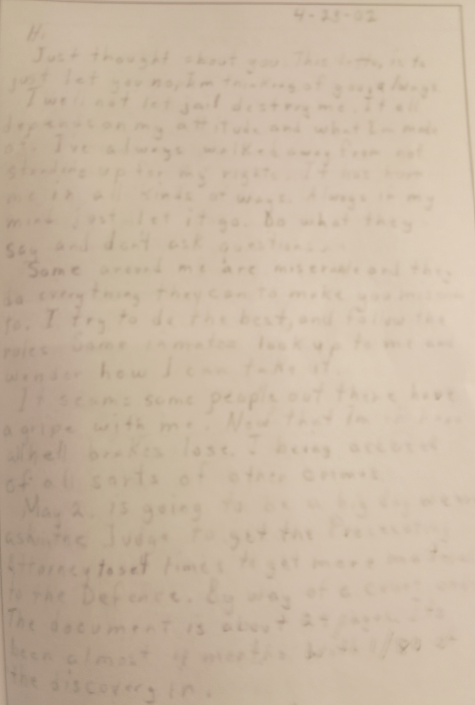 4-23-02
Hi,
Just thought about you. This letter is to
just let you no, Im thinking of you, always.
I well not let jail destroy me. It all
depends on my attitude and what Im made
of. I've always walked away from not
standing up for my rights. It has
me in all kinds of ways. Always in my
mind just let it go. Do what they
say and don't ask questions.
Some around me are miserable and they
do everything they can to make you
to. I try to do the best, and follow the
roles. Some inmates look up to me and
wonder how I can take it.
It seams some people out there have
a gripe with me. Now that Im in here
all hell brakes lose. I being accused
of all sorts of other
May 2. is going to be a big day
the Judge to get the
Attorney to set times to get more
to the Defence. By way of a
The document is about 24 pages. Its
been almost 4 months with 1/ of
the discovery in.